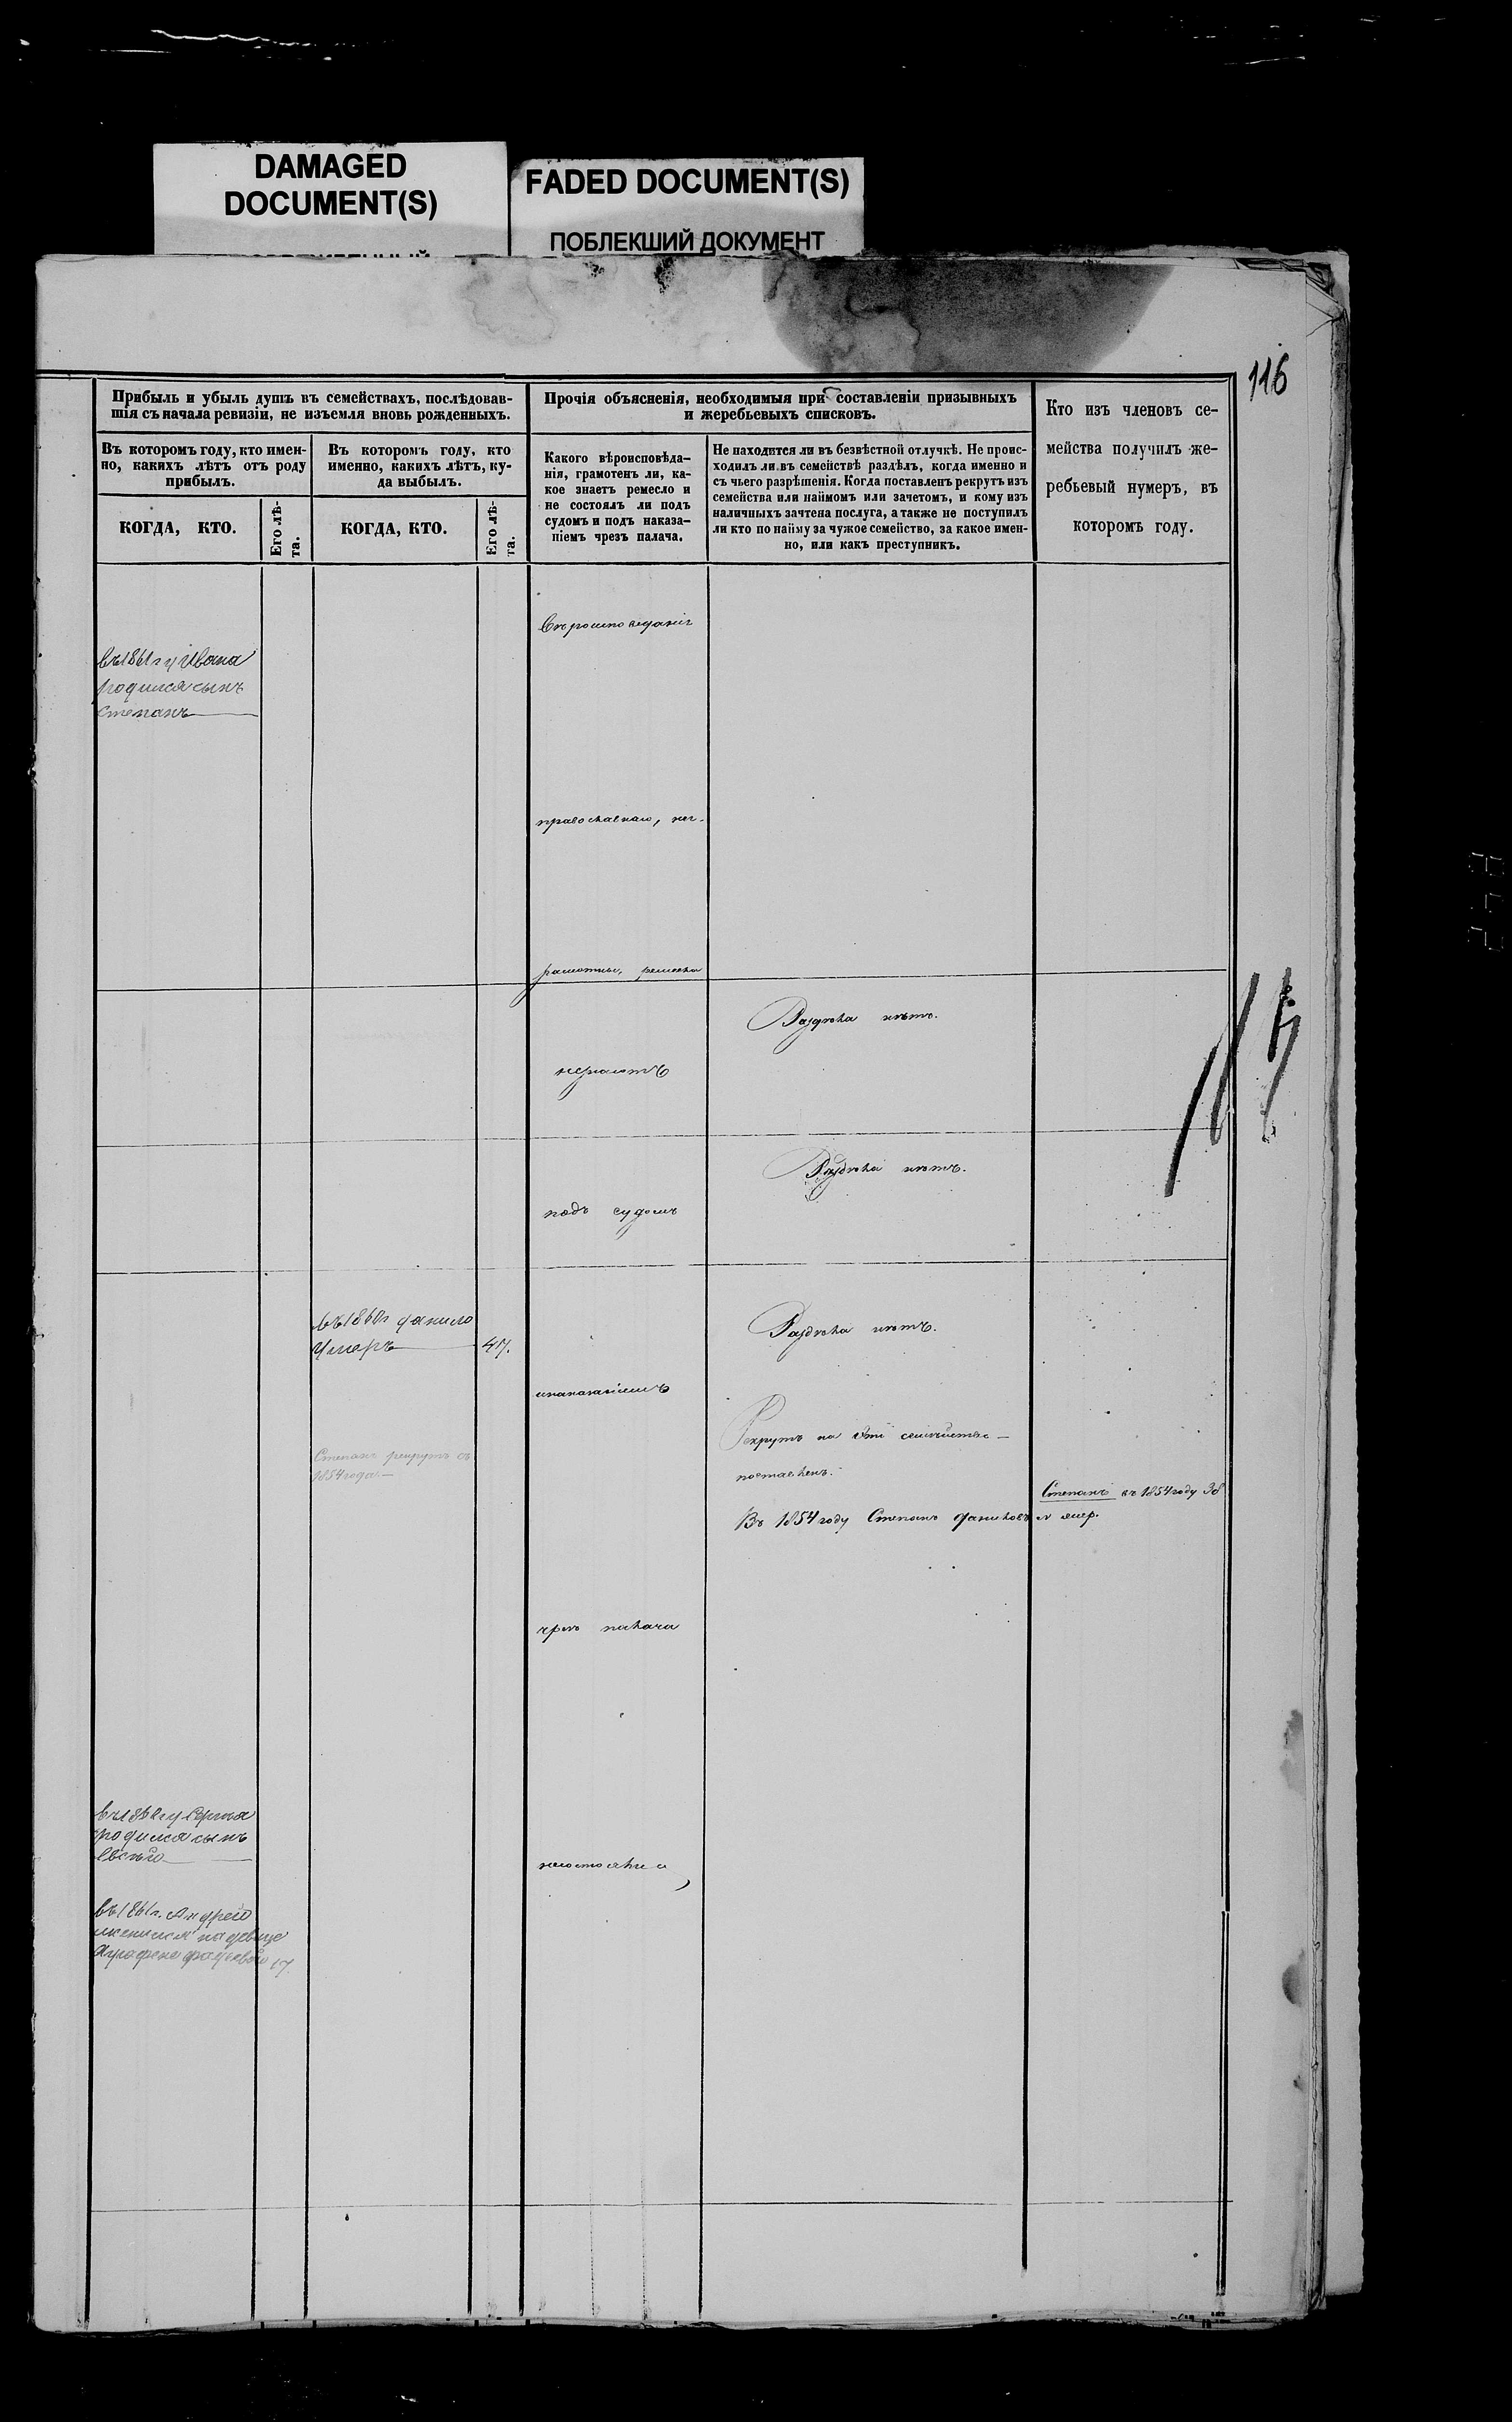 DAMAGED
DOCUMENT(S)
FADED DOCUMENT(S)
ПОБЛЕКШИЙ ДОКУМЕНТ
116
Прибыль и убыль душъ въ семействахъ, послѣдовав-
шія съ начала ревизіи, не изъемля вновь рожденныхъ.
Въ которомъ году, кто имен-
но, какихъ лѣтъ отъ роду
прибылъ.
КОГДА, КТО.
Его лѣ-
та.
Въ которомъ году, кто
именно, какихъ лѣтъ, ку-
да выбылъ.
КОГДА, КТО.
Его лѣ-
та.
Прочія объясненія, необходимыя при составленіи призывныхъ
и жеребьевыхъ списковъ.
Какого вѣроисповѣда-
нія, грамотенъ ли, ка-
кое знаетъ ремесло и
не состоялъ ли подъ
судомъ и подъ наказа-
ніемъ чрезъ палача.
Не находится ли въ безвѣстной отлучкѣ. Не проис-
ходилъ ли въ семействѣ раздѣлъ, когда именно и
съ чьего разрѣшенія. Когда поставленъ рекрутъ изъ
семейства или наймомъ или зачетомъ, и кому изъ
наличныхъ зачтена послуга, а также не поступилъ
ли кто по найму за чужое семейство, за какое имен-
но, или какъ преступникъ.
Кто изъ членовъ се-
мейства получилъ же-
ребьевый нумеръ, въ
которомъ году.
Въ 1861 г у Ивана
родился сынъ
Степанъ
православнаго, не-
грамотны, ремесла
Раздѣла нѣтъ.
Раздѣла нѣтъ.
подъ судомъ
въ 1860г Данило
умеръ
47.
Раздѣла нѣтъ.
Рекрутъ на
поставленъ.
Степанъ рекрутъ съ
1854 года.
Степанъ въ 1854 году 38
Въ 1854 году Степанъ Даниловъ
чрезъ палача
родился сынъ
Въ 1861г. Андрей
женился на девице
17